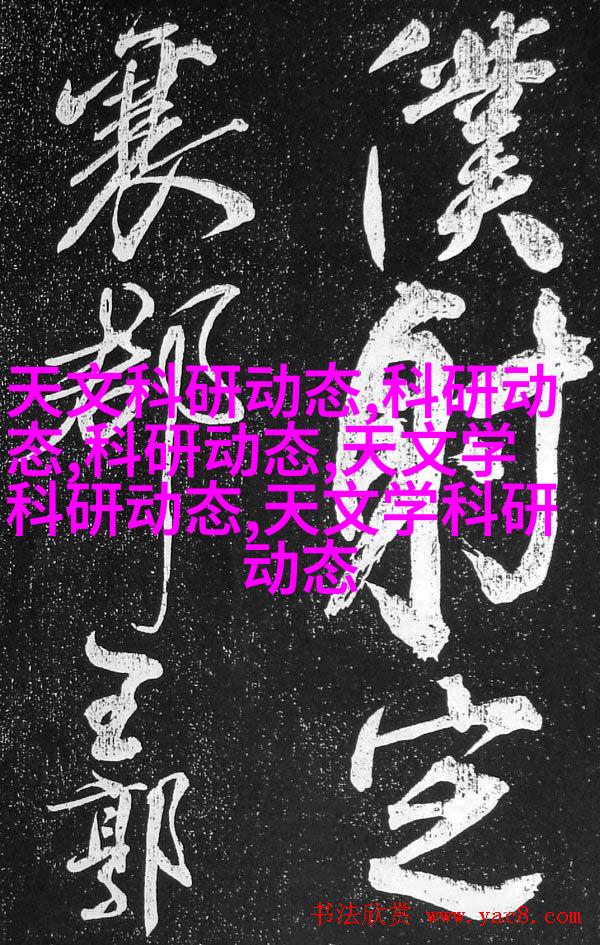 僕射定
襄郡王郭
天文科研动态,科研动
态,科研动态,天文学
科研动态,天文学科研
动态
书法欣赏 www.yac8.com